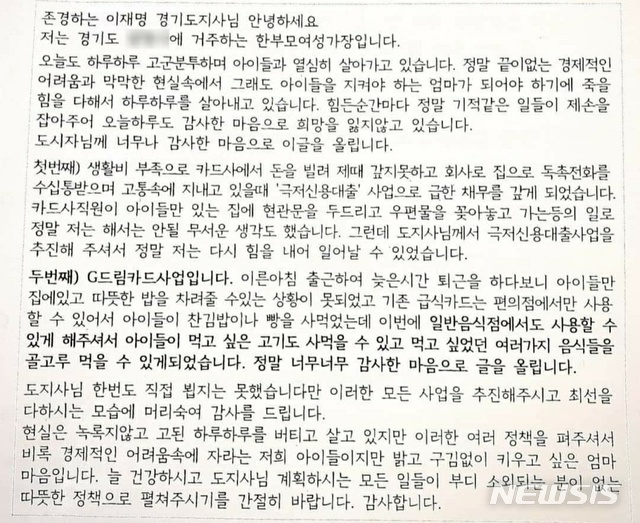 존경하는 이재명 경기도지사님 안녕하세요
저는 경기도 에 거주하는 한부모여성가장입니다.
오늘도 하루하루 고군분투하며 아이들과 열심히 살아가고 있습니다. 정말 끝이없는 경제적인
어려움과 막막한 현실속에서 그래도 아이들을 지켜야 하는 엄마가 되어야 하기에 죽을
힘을 다해서 하루하루를 살아내고 있습니다. 힘든순간마다 정말 기적같은 일들이 제손을
잡아주어 오늘하루도 감사한 마음으로 희망을 잃지않고 있습니다.
도시자님께 너무나 감사한 마음으로 이글을 올립니다.
첫번째) 생활비 부족으로 카드사에서 돈을 빌려 제때 갚지못하고 회사로 집으로 독촉전화를
수십통받으며 고통속에 지내고 있을때 '극저신용대출' 사업으로 급한 채무를 갚게 되었습니다.
카드사직원이 아이들만 있는 집에 현관문을 두드리고 우편물을 꽂아놓고 가는등의 일로
정말 저는 해서는 안될 무서운 생각도 했습니다. 그런데 도지사님께서 극저신용대출사업을
추진해 주셔서 정말 저는 다시 힘을 내어 일어날 수 있었습니다.
두번째) G드림카드사업입니다. 이른아침 출근하여 늦은시간 퇴근을 하다보니 아이들만
집에있고 따뜻한 밥을 차려줄 수있는 상황이 못되었고 기존 급식카드는 편의점에서만 사용
할 수 있어서 아이들이 찬김밥이나 빵을 사먹었는데 이번에 일반음식점에서도 사용할 수
있게 해주셔서 아이들이 먹고 싶은 고기도 사먹을 수 있고 먹고 싶었던 여러가지 음식들을
골고루 먹을 수 있게되었습니다. 정말 너무너무 감사한 마음으로 글을 올립니다.
도지사님 한번도 직접 뵙지는 못했습니다만 이러한 모든 사업을 추진해주시고 최선을
다하시는 모습에 머리숙여 감사를 드립니다.
현실은 녹록지않고 고된 하루하루를 버티고 살고 있지만 이러한 여러 정책을 펴주셔서
비록 경제적인 어려움속에 자라는 저희 아이들이지만 밝고 구김없이 키우고 싶은 엄마
마음입니다. 늘 건강하시고 도지사님 계획하시는 모든 일들이 부디 소외되는 분이 없는
따뜻한 정책으로 펼쳐주시기를 간절히 바랍니다. 감사합니다.
NEWSIS